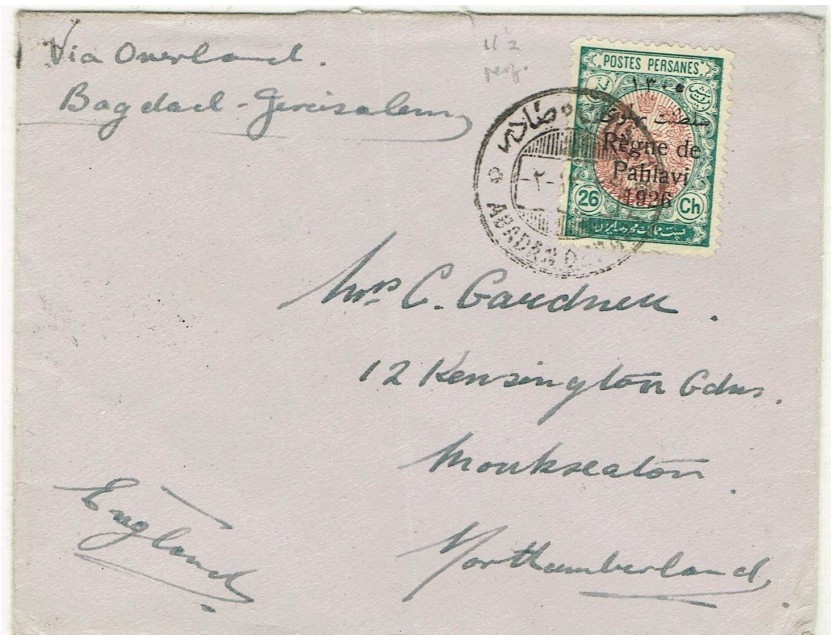 Via Overland.
Bagdad-Jerusalem
11½
perf.
POSTES PERSANES
۱۳۰۵
سلطنت پهلوی
Règne de
Pahlavi
1926
26 Ch
ABADAN
Mrs C. Gardner.
12 Kensington Gdns.
Monkseaton.
Northumberland.
England